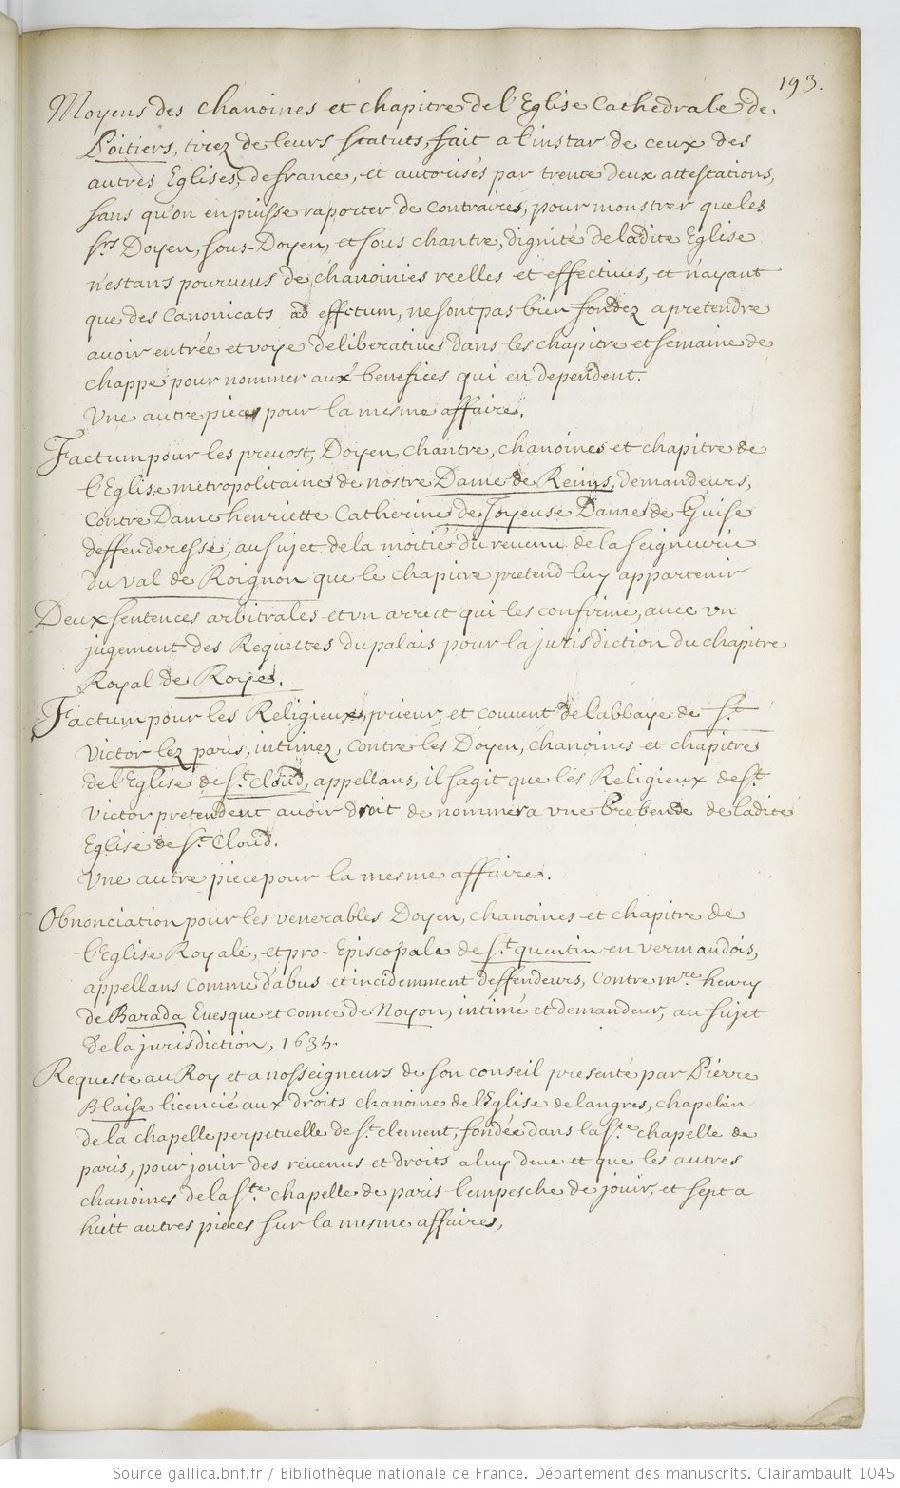 193.
Moyens des chanoines et chapitre de l'Eglise Cathedrale de
Poitiers, tirez de leurs statuts, fait a l'instar de ceux des
autres Eglises, de france, et autorisés par trente deux attestations,
sans qu'on en puisse raporter de contraires, pour monstrer que les
srs Doyen, sous-Doyen, et sous chantre, dignité de ladite Eglise
n'estans pourveus de chanoinies reelles et effectives, et n'ayant
que des Canonicats ad effectum, ne sont pas bien fondez a pretendre
avoir entrée et voye deliberative dans les chapitre et semaine de
chappe pour nommer aux benefices qui en dependent.
Une autre piece pour la mesme affaire.
Factum pour les prevost, Doyen, chantre, chanoines et chapitre de
l'Eglise metropolitaine de nostre Dame de Reims, demandeurs,
contre Dame henriette Catherine de Joyeuse Dame de Guise
deffenderesse, au sujet de la moitié du revenu de la seigneurie
du val de Roignon que le chapitre pretend luy appartenir
Deux sentences arbitrales et vn arrest qui les confirme, avec vn
jugement des Requestes du palais pour la jurisdiction du chapitre
Royal de Roye.
Factum pour les Religieux, prieur, et couvent de l'abbaye de St.
Victor lez paris, intimez, contre les Doyen, chanoines et chapitre
de l'Eglise de St. Cloud, appellans, il s'agit que les Religieux de St.
Victor pretendent avoir droit de nommer a vne Prebende de ladite
Eglise de St. Cloud.
Vne autre piece pour la mesme affaire.
Obnonciation pour les venerables Doyen, chanoines et chapitre de
l'Eglise Royale, et pro-Episcopale de St. quentin en vermandois,
appellans comme d'abus et incidemment deffendeurs, contre mre. henry
de Barada Evesque et comte de Noyon, intimé et demandeur, au sujet
de la jurisdiction,
Requeste au Roy et a nosseigneurs de son conseil presenté par Pierre
Blaise licencié aux droits chanoine de l'Eglise de langres, chapelain
de la chapelle perpetuelle de St. clement, fondée dans la Ste. chapelle de
paris, pour jouir des revenus et droits a luy deue et que les autres
chanoines de la Ste. chapelle de paris l'empesche de jouir, et sept a
huitt autres pieces sur la mesme affaires,
Source gallica.bnf.fr / Bibliothèque nationale de France. Département des manuscrits. Clairambault 1045